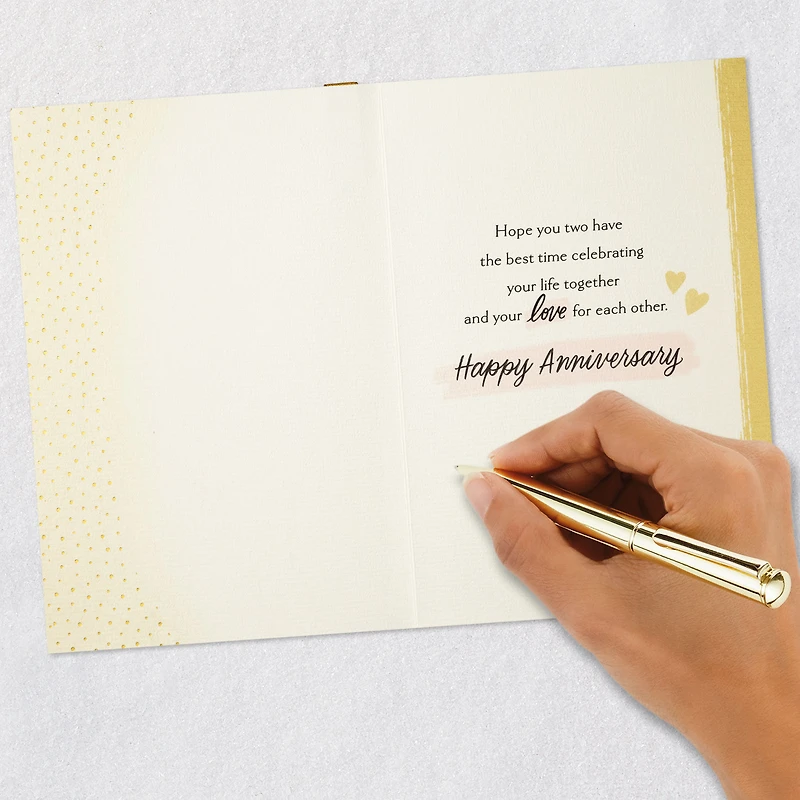 Hope you two have
the best time celebrating
your life together
and your love for each other.
Happy Anniversary